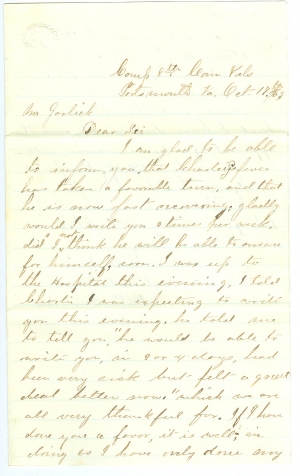 Camp 8th Con Vols
Portsmouth Va. Oct 18th/63
Mr Gorlick
Dear Sir
I am glad to be able
to inform you, that Charley's fever
has taken a favorable turn, and that
he is now fast recovering, gladly
would I write you 3 times per week,
did I not think he will be able to answer
for himself, soon. I was up to
the Hospital this evening, I told
Charlie I was expecting to write
you this evening, he told me
to tell you, "he would be able to
write you, in 3 or 4 days, had
been very sick but felt a great
deal better now." which we are
all very thankful for. If I have
done you a favor, it is well; in
doing so I have only done my